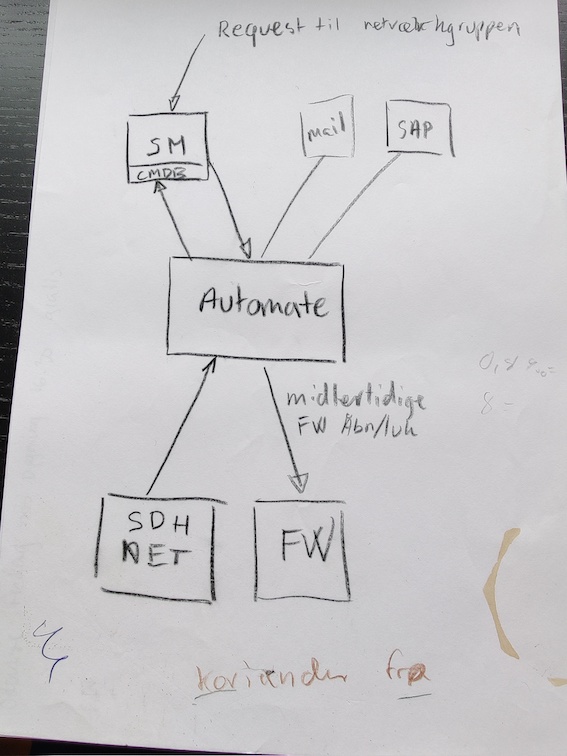 Request til netværkgruppen
SM
CMDB
mail
SAP
Automate
midlertidige
FW Åbn/luk
SDH
NET
FW
koriander frø